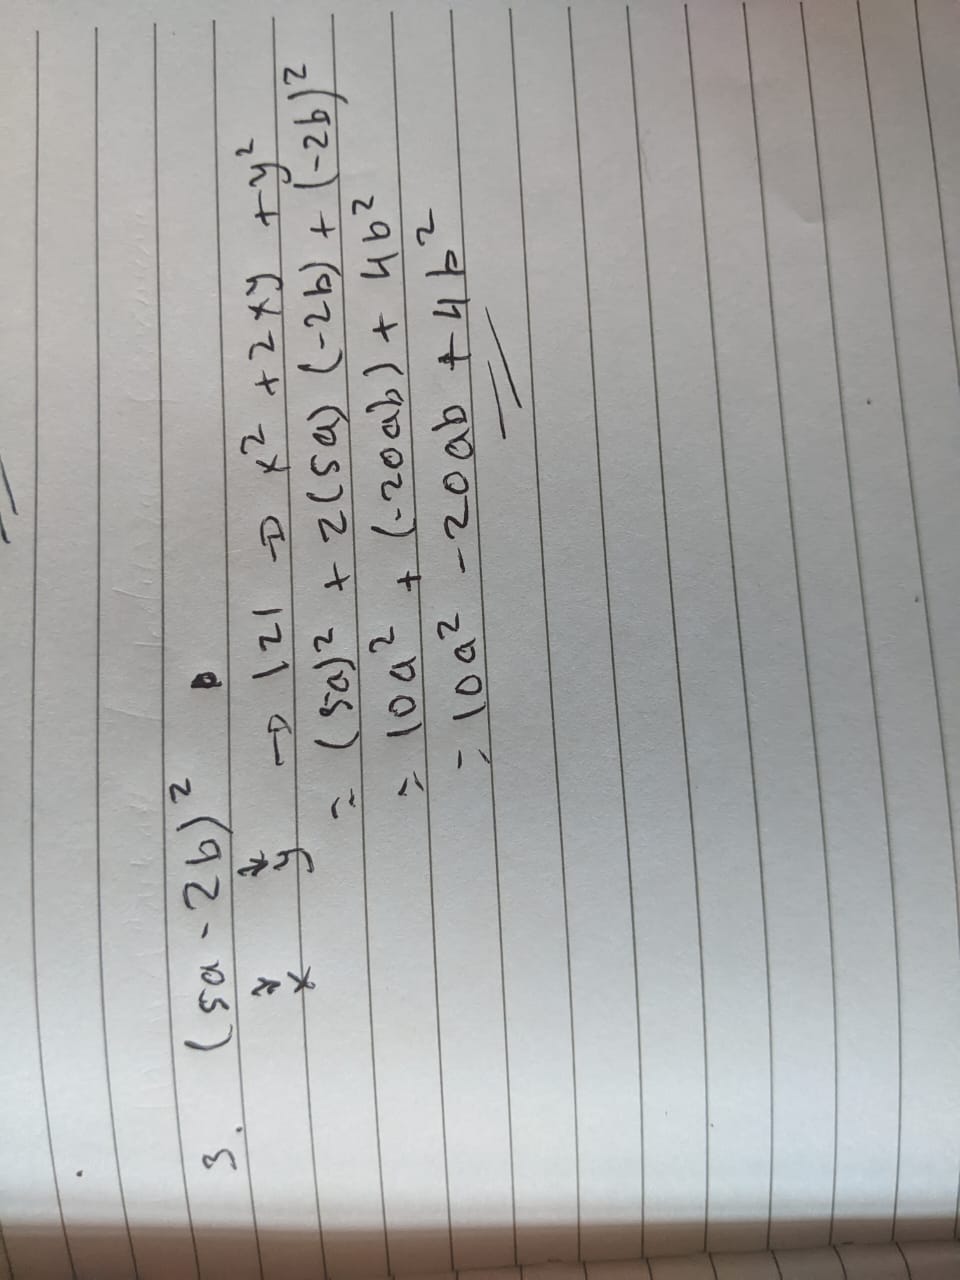 3. (5a - 2b)²
x y → 121 → x² + 2xy + y²
= (5a)² + 2(5a) (-2b) + (-2b)²
= 10a² + (-20ab) + 4b²
= 10a² - 20ab + 4b²